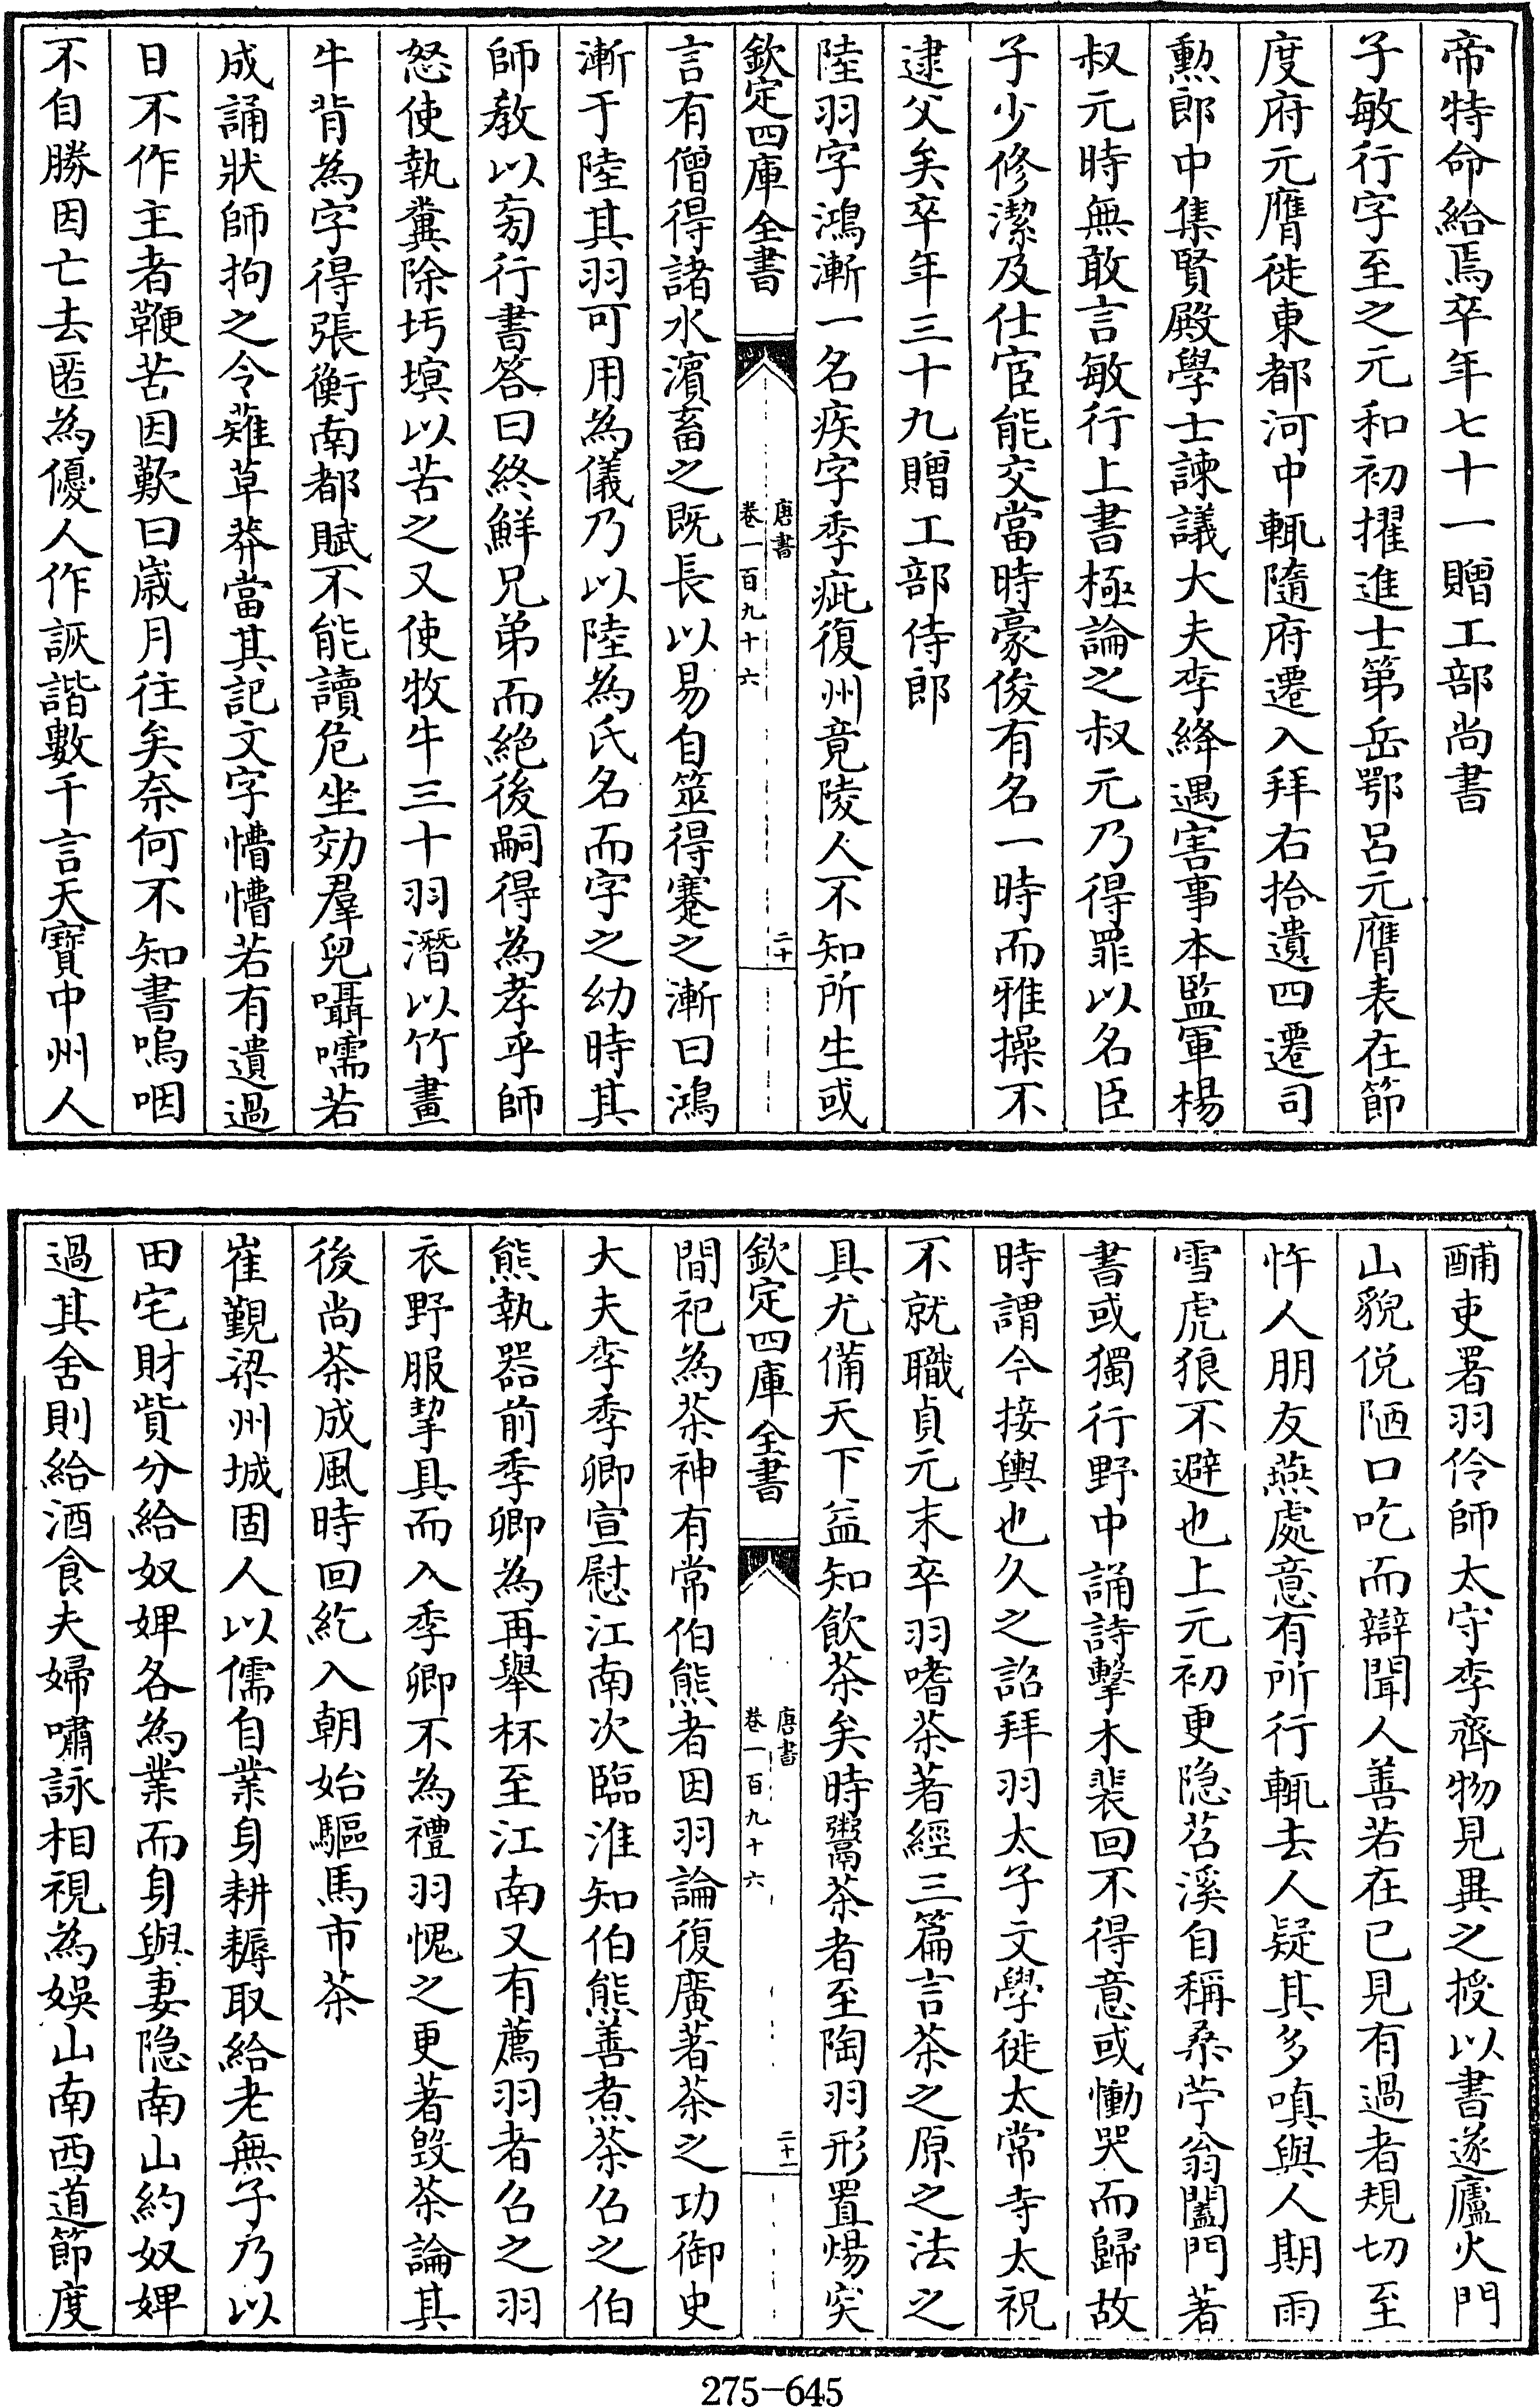 帝特命給焉卒年七十一贈工部尚書
子敏行字至之元和初擢進士第岳鄂呂元膺表在節
度府元膺徙東都河中輒隨府遷入拜右拾遺四遷司
勲郎中集賢殿學士諫議大夫李絳遇害事本監軍楊
叔元時無敢言敏行上書極論之叔元乃得罪以名臣
子少修潔及仕宦能交當時豪俊有名一時而雅操不
逮父矣卒年三十九贈工部侍郎
陸羽字鴻漸一名疾字季疵復州竟陵人不知所生或
欽定四庫全書
唐書
卷一百九十六
二十
言有僧得諸水濱畜之既長以易自筮得蹇之漸曰鴻
漸于陸其羽可用為儀乃以陸為氏名而字之幼時其
師教以旁行書答曰終鮮兄弟而絶後嗣得為孝乎師
怒使執糞除圬塓以苦之又使牧牛三十羽潛以竹畫
牛背為字得張衡南都賦不能讀危坐効羣兒囁嚅若
成誦狀師拘之令薙草莽當其記文字懵懵若有遺過
日不作主者鞭苦因歎曰歲月往矣奈何不知書嗚咽
不自勝因亡去匿為優人作詼諧數千言天寶中州人
酺吏署羽伶師太守李齊物見異之授以書遂廬火門
山貌侻陋口吃而辯聞人善若在已見有過者規切至
忤人朋友燕處意有所行輒去人疑其多嗔與人期雨
雪虎狼不避也上元初更隐苕溪自稱桑苧翁闔門著
書或獨行野中誦詩擊木裴回不得意或慟哭而歸故
時謂今接輿也久之詔拜羽太子文學徙太常寺太祝
不就職貞元末卒羽嗜茶著經三篇言茶之原之法之
具尤備天下益知飲茶矣時鬻茶者至陶羽形置煬突
欽定四庫全書
唐書
卷一百九十六
二十一
間祀為茶神有常伯熊者因羽論復廣著茶之功御史
大夫李季卿宣慰江南次臨淮知伯熊善煮茶召之伯
熊執器前季卿為再舉杯至江南又有薦羽者召之羽
衣野服挈具而入季卿不為禮羽愧之更著毁茶論其
後尚茶成風時回紇入朝始驅馬市茶
崔覲梁州城固人以儒自業身耕耨取給老無子乃以
田宅財貲分給奴婢各為業而身與妻隐南山約奴婢
過其舍則給酒食夫婦嘯詠相視為娛山南西道節度
275-645